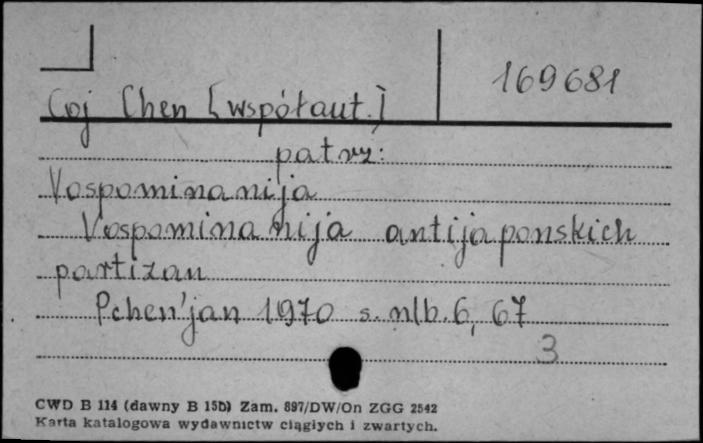 169681
Coj Chen [współaut.]
patrz:
Vospominanija
Vospominanija antijaponskich
partizan
Pchen'jan 1970 s. nlb. 6, 67
3
CWD B 114 (dawny B 15b) Zam. 897/DW/On ZGG 2542
Karta katalogowa wydawnictw ciągłych i zwartych.